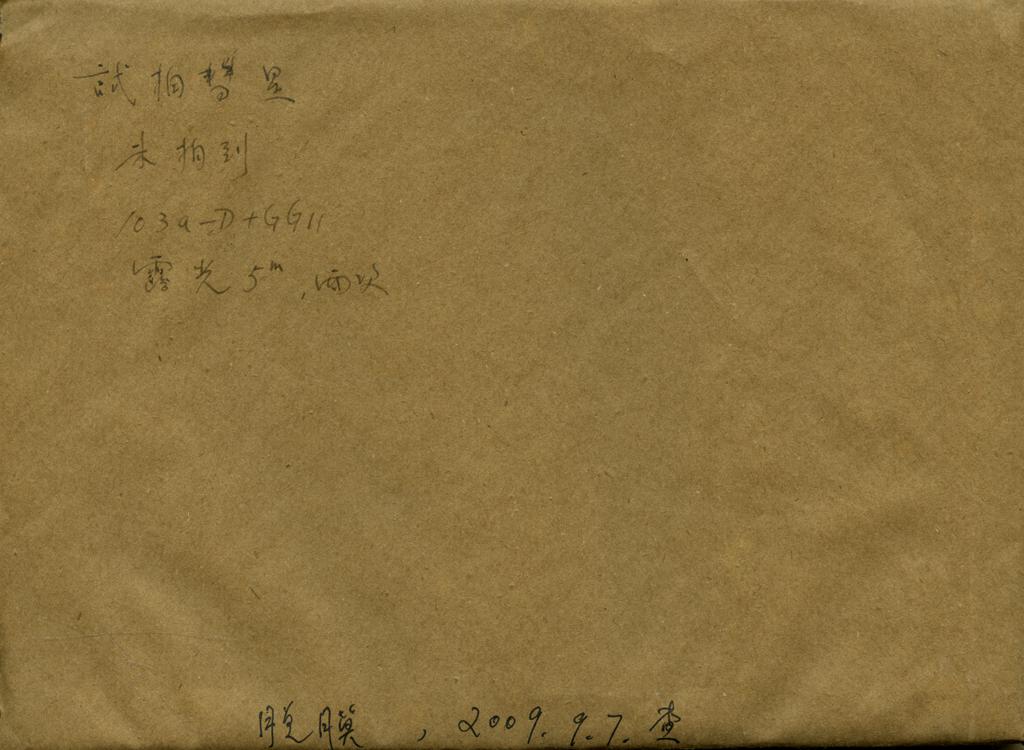 試拍彗星
未拍到
103a-D+GG11
露光 5m, 两次
脱膜, 2009.9.7.查